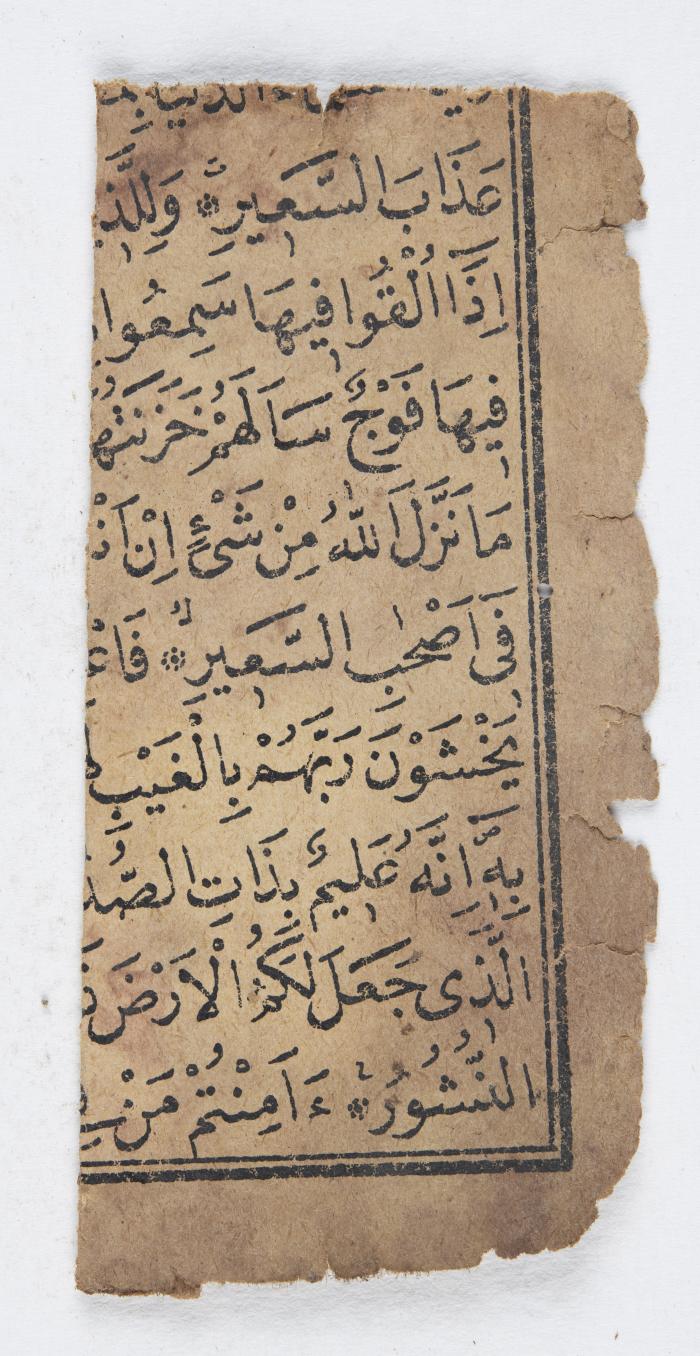 السماء الدنيا
عَذَابَ السَّعِيرِ ۞ وَلِلَّذ
اِذَا اُلْقُوا فِيهَا سَمِعُوا
فِيهَا فَوْجٌ سَاَلَهُمْ خَزَنَتُهَ
مَا نَزَّلَ اللّٰهُ مِنْ شَىْءٍ اِنْ اَنْ
فِى اَصْحٰبِ السَّعِيرِ ۞ فَاعْ
يَخْشَوْنَ رَبَّهُمْ بِالْغَيْبِ
بِهِ اِنَّهُ عَلِيمٌ بِذَاتِ الصُّدُ
الَّذِى جَعَلَ لَكُمُ الْاَرْضَ ذَ
النُّشُورُ ۞ ءَاَمِنْتُمْ مَنْ فِ